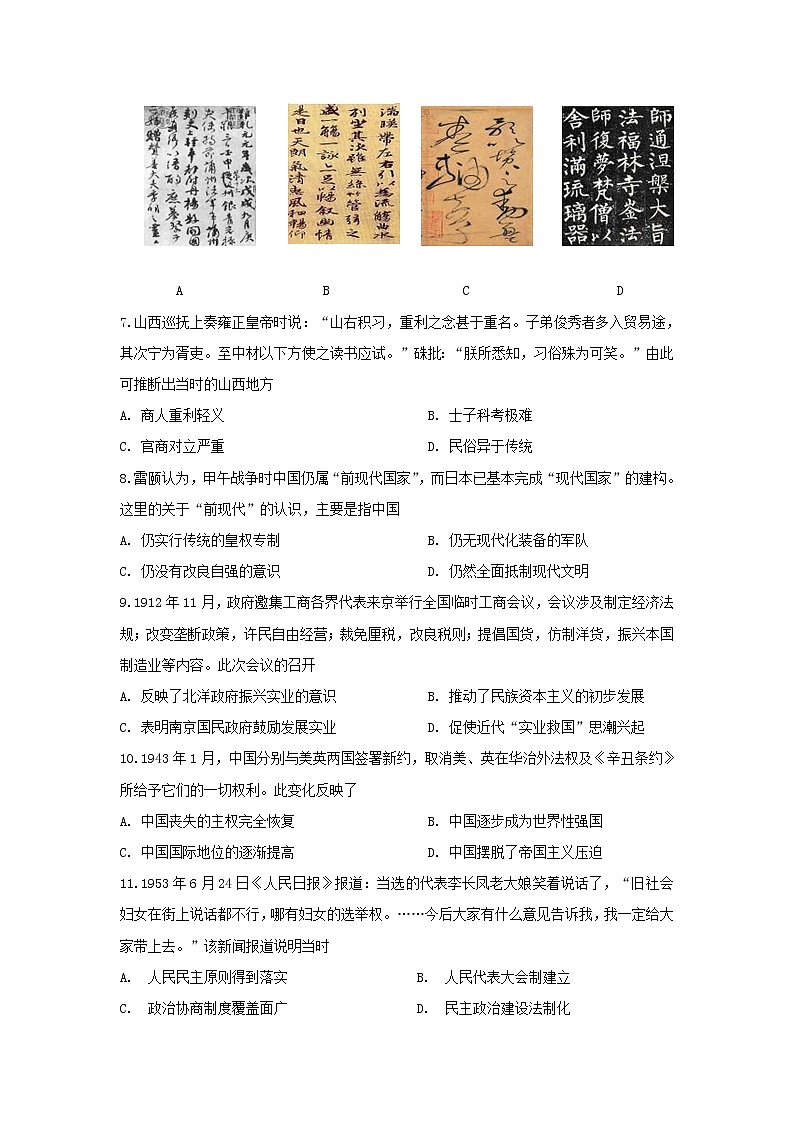 師通涅槃大旨
法福林寺崟法
師復夢梵僧以
舍利滿琉璃器
A B C D
7.山西巡抚上奏雍正皇帝时说：“山右积习，重利之念甚于重名。子弟俊秀者多入贸易途，
其次宁为胥吏。至中材以下方使之读书应试。”硃批：“朕所悉知，习俗殊为可笑。”由此
可推断出当时的山西地方
A. 商人重利轻义 B. 士子科考极难
C. 官商对立严重 D. 民俗异于传统
8.雷颐认为，甲午战争时中国仍属“前现代国家”，而日本已基本完成“现代国家”的建构。
这里的关于“前现代”的认识，主要是指中国
A. 仍实行传统的皇权专制 B. 仍无现代化装备的军队
C. 仍没有改良自强的意识 D. 仍然全面抵制现代文明
9.1912 年 11 月，政府邀集工商各界代表来京举行全国临时工商会议，会议涉及制定经济法
规；改变垄断政策，许民自由经营；裁免厘税，改良税则；提倡国货，仿制洋货，振兴本国
制造业等内容。此次会议的召开
A. 反映了北洋政府振兴实业的意识 B. 推动了民族资本主义的初步发展
C. 表明南京国民政府鼓励发展实业 D. 促使近代“实业救国”思潮兴起
10.1943 年 1 月，中国分别与美英两国签署新约，取消美、英在华治外法权及《辛丑条约》
所给予它们的一切权利。此变化反映了
A. 中国丧失的主权完全恢复 B. 中国逐步成为世界性强国
C. 中国国际地位的逐渐提高 D. 中国摆脱了帝国主义压迫
11.1953 年 6 月 24 日《人民日报》报道：当选的代表李长凤老大娘笑着说话了，“旧社会
妇女在街上说话都不行，哪有妇女的选举权。……今后大家有什么意见告诉我，我一定给大
家带上去。”该新闻报道说明当时
A. 人民民主原则得到落实 B. 人民代表大会制建立
C. 政治协商制度覆盖面广 D. 民主政治建设法制化